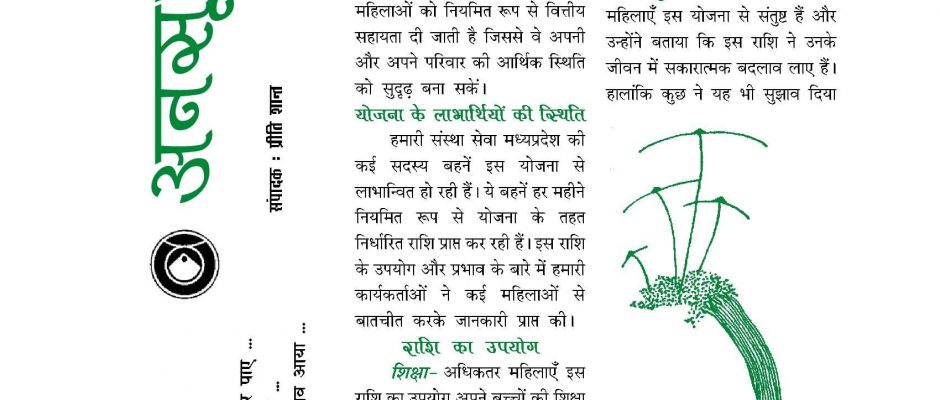 संपादक : प्रीति शान्त
र पाए ...
...
व आया ...
महिलाओं को नियमित रूप से वित्तीय
सहायता दी जाती है जिससे वे अपनी
और अपने परिवार की आर्थिक स्थिति
को सुदृढ़ बना सकें।
योजना के लाभार्थियों की स्थिति
हमारी संस्था सेवा मध्यप्रदेश की
कई सदस्य बहनें इस योजना से
लाभान्वित हो रही हैं। ये बहनें हर महीने
नियमित रूप से योजना के तहत
निर्धारित राशि प्राप्त कर रही हैं। इस राशि
के उपयोग और प्रभाव के बारे में हमारी
कार्यकर्ताओं ने कई महिलाओं से
बातचीत करके जानकारी प्राप्त की।
राशि का उपयोग
शिक्षा- अधिकतर महिलाएँ इस
राशि का उपयोग अपने बच्चों की शिक्षा
महिलाएँ इस योजना से संतुष्ट हैं और
उन्होंने बताया कि इस राशि ने उनके
जीवन में सकारात्मक बदलाव लाए हैं।
हालांकि कुछ ने यह भी सुझाव दिया